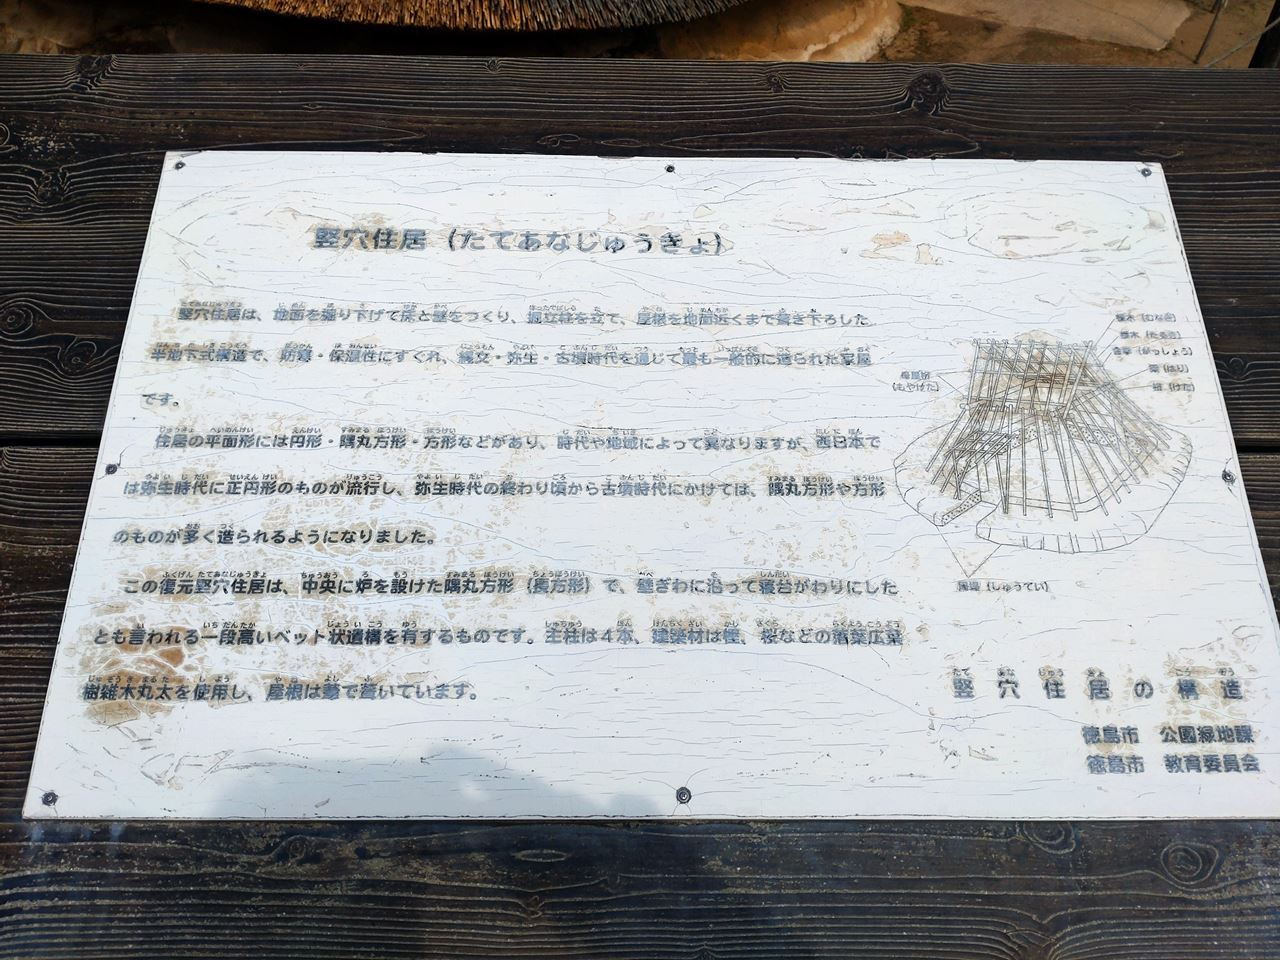 竪穴住居（たてあなじゅうきょ）
竪穴住居は、地面を掘り下げて床と壁をつくり、掘立柱を立て、屋根を地面近くまで葺き下ろした
半地下式構造で、防寒・保温性にすぐれ、縄文・弥生・古墳時代を通じて最も一般的に造られた家屋
です。
住居の平面形には円形・隅丸方形・方形などがあり、時代や地域によって異なりますが、西日本で
は弥生時代に正円形のものが流行し、弥生時代の終わり頃から古墳時代にかけては、隅丸方形や方形
のものが多く造られるようになりました。
この復元竪穴住居は、中央に炉を設けた隅丸方形（長方形）で、壁ぎわに沿って寝台がわりにした
とも言われる一段高いベット状遺構を有するものです。主柱は4本、建築材は樫、桜などの落葉広葉
樹雑木丸太を使用し、屋根は葦で葺いています。
棟木（むなぎ）
垂木（たるき）
合掌（がっしょう）
梁（はり）
桁（けた）
母屋桁
（もやげた）
周堤（しゅうてい）
竪穴住居の構造
徳島市 公園緑地課
徳島市 教育委員会